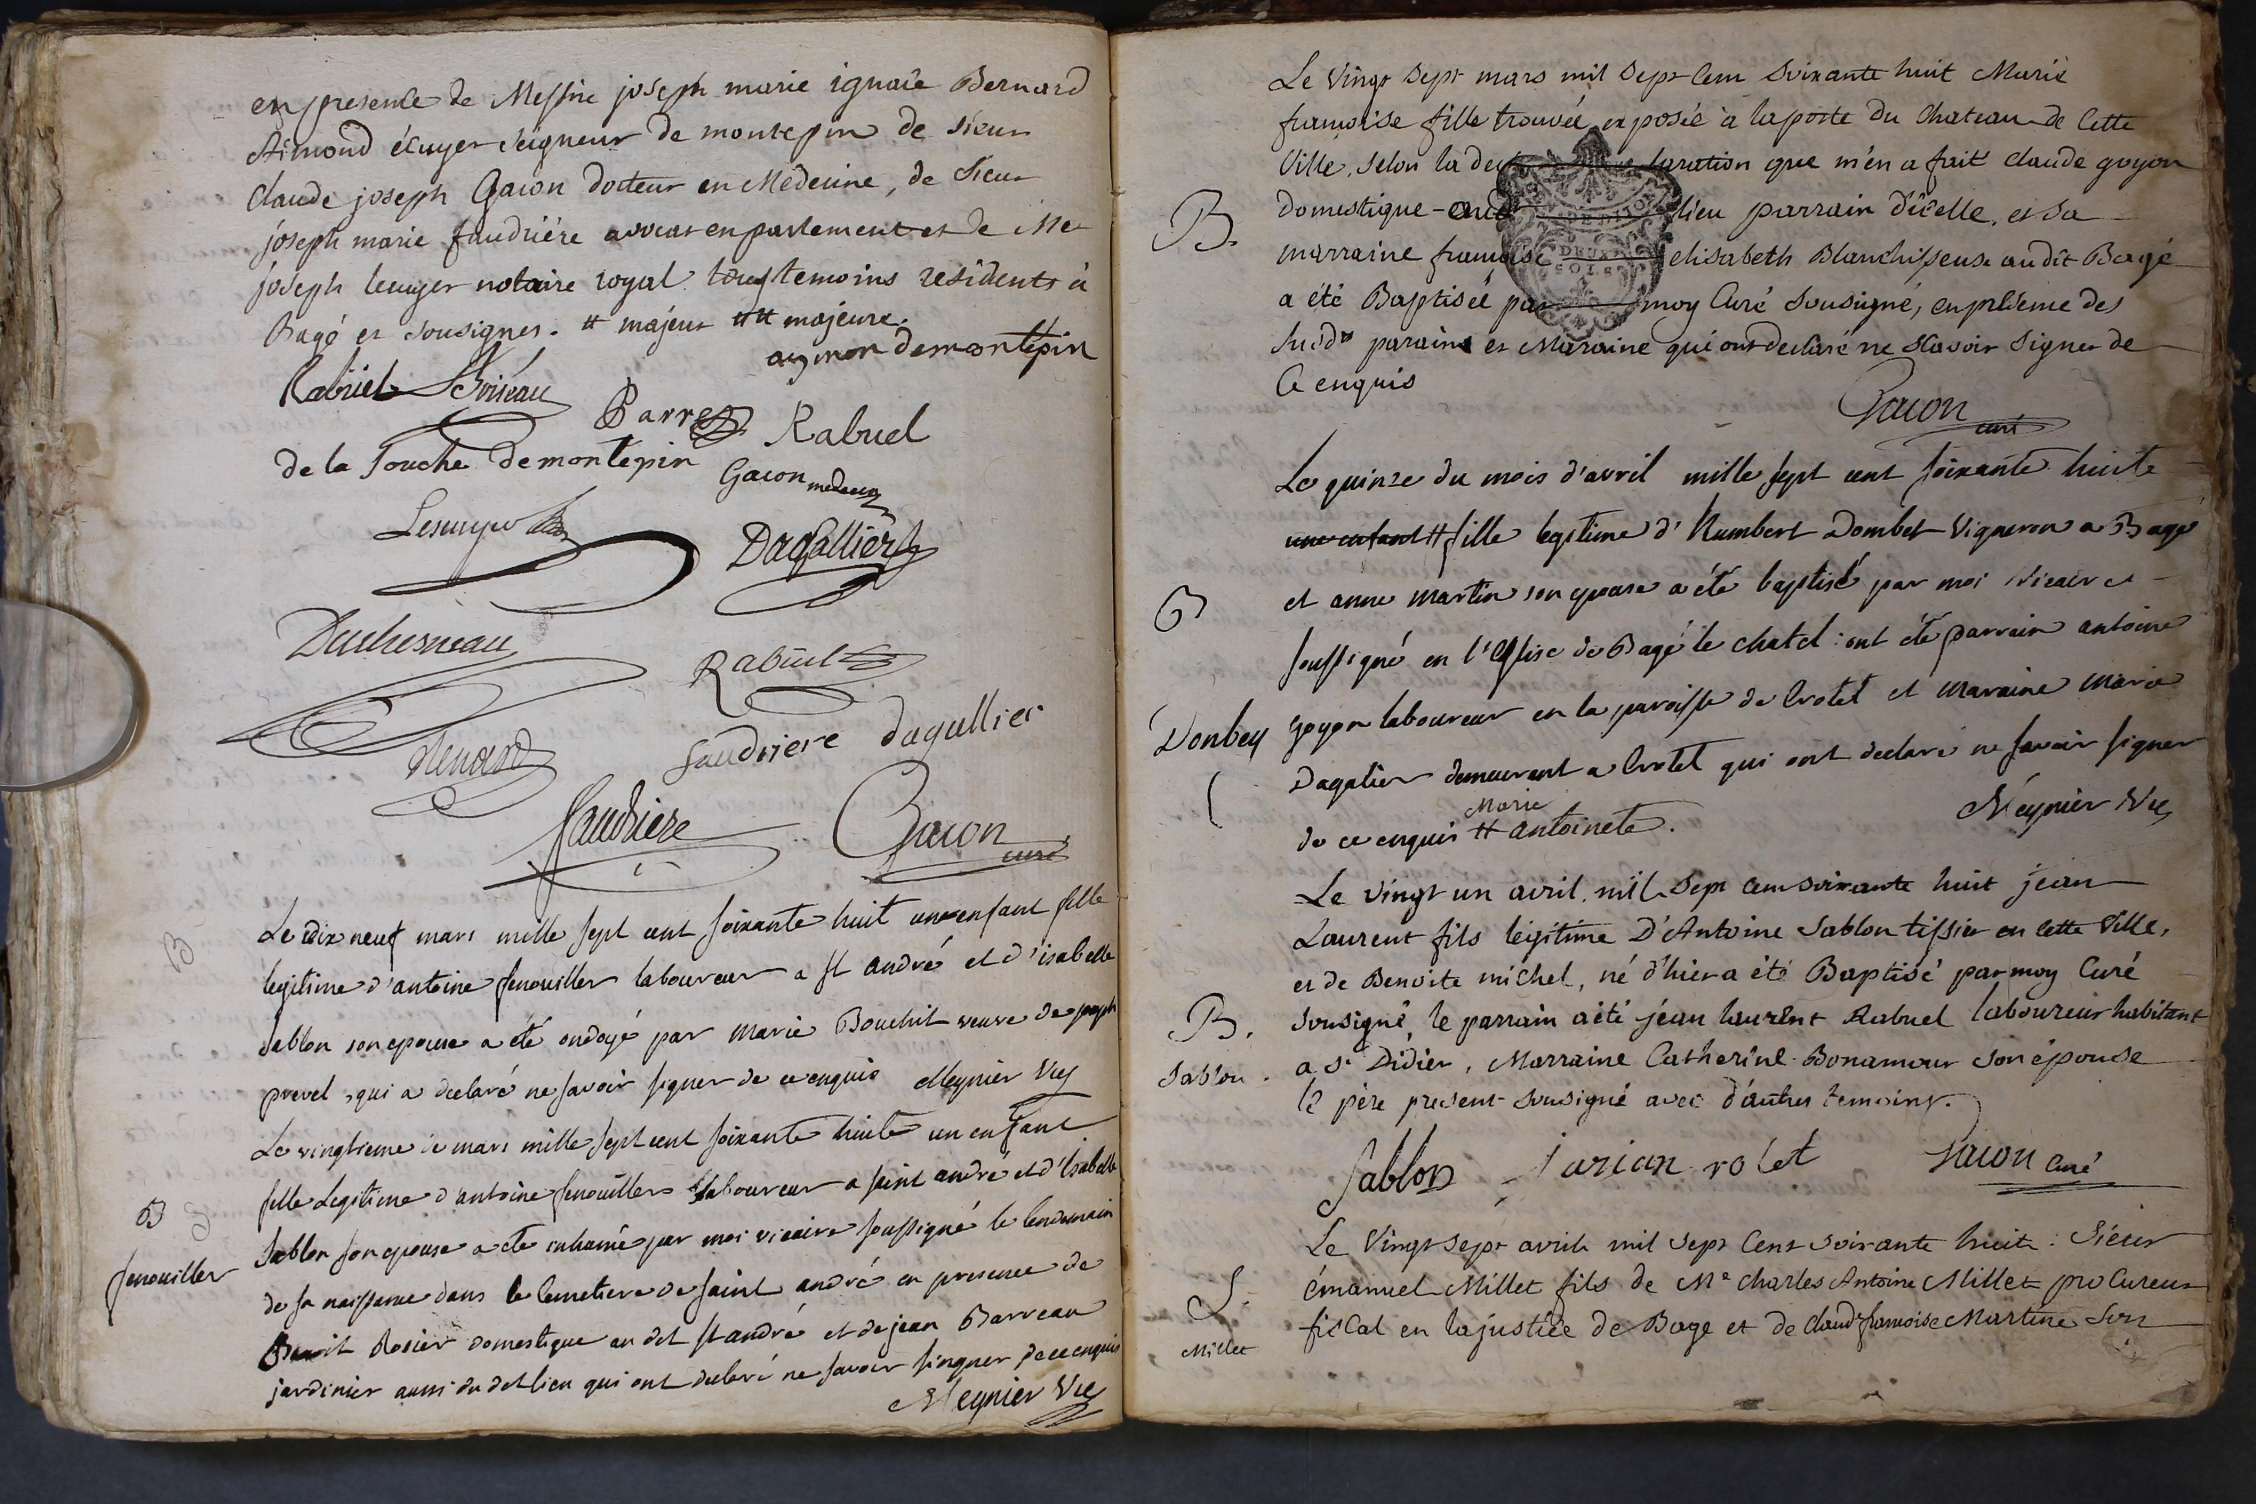 en presence de Messire joseph marie ignace Bernard
Aimond écuyer seigneur de montepin de sieur
Claude joseph Gacon docteur en Médecine, de Sieur
joseph marie faudriére avocat en parlement et de Me
joseph lecuyer notaire royal tous temoins residents à
Bagé et sousignes. # majeur ## majeure.
aymon demontepin
Rabüel
Parre
Rabuel
de la Touche demontepin
Gacon medecin
Lescuyer
Dagallier
Duchesneau
Rabüel
Renard
faudriere dagallier
faudriere
Gacon curé
B
Le dix neuf mars mille sept cent soixante huit un enfant fille
legitime d'antoine fenouiller laboureur a st andré et d'isabelle
sablon son epouse a été ondoyé par marie Bouchit veuve de joseph
prevel, qui a declaré ne savoir signer de ce enquis Meynier Vic
B
S
fenouiller
Le vingtieme de mars mille sept cent soixante huite un enfant
fille Legitime d'antoine fenouiller laboureur a saint andré et d'Isabelle
Sablon son epouse a été inhumé par moi vicaire soussigné le lendemain
de sa naissance dans le cemetiere de saint andré en presence de
Benoit Rosier domestique au dit st andré et de jean Barreau
jardinier aussi du dit lieu qui ont declaré ne savoir singner de ce enquis
Meynier Vic
B.
Le Vingt Sept mars mil Sept Cent Soixante huit Marie
françoise fille trouvée, exposée à la porte du Chateau de Cette
Ville, selon la declaration que m'en a fait claude goyon
domestique audit lieu parrain d'icelle, et sa
marraine françoise elisabeth Blanchisseuse audit Bagé
a été Baptisée par moy Curé Sousigné, en presence des
susds parain et Maraine qui ont declaré ne Scavoir Signer de
Ce enquis
Gacon curé
B
Donbey
Le quinze du mois d'avril mille sept cent soixante huite
une enfant # fille legitime d'Humbert Dombet Vigneron a Bagé
et anne martin son epouse a été baptisé par moi vicaire
soussigné en l'eglise de Bagé le chatel : ont été parrain antoine
goyon laboureur en la paroisse de Crotet et maraine marie
Dagalier demeurant a Crotet qui ont declaré ne savoir signer
de ce enquis # Marie antoinete.
Meynier Vic
B.
Sablon.
Le vingt un avril mil Sept Cent soixante huit jean
Laurent fils légitime D'Antoine Sablon tissier en cette Ville,
et de Benoite michel, né d'hier a été Baptisé par moy Curé
Sousigné, le parrain a été jéan laurent Rabuel laboureur habitant
a St Didier, Marraine Catherine Bonamour son épouse
le père present sousigné avec d'autres temoins.
Sablon jurian rolet Gacon curé
S.
Millet
Le Vingt sept avril mil sept Cent soixante huit. Siéur
émanuel Millet fils de Me Charles Antoine Millet proCureur
fisCal en la justice de Bage et de Claude françoise Martine Son